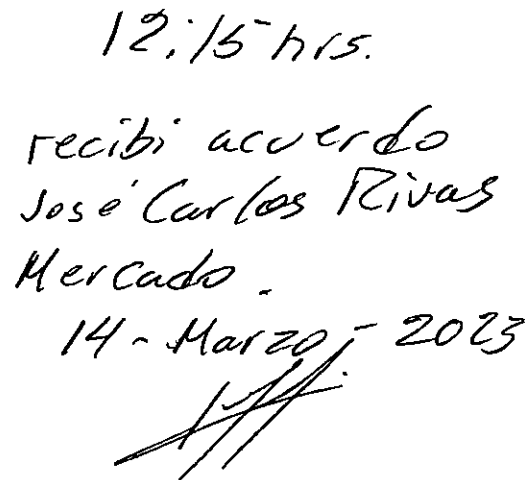 12:15 hrs.
recibi acuerdo
José Carlos Rivas
Mercado.
14-Marzo-2023